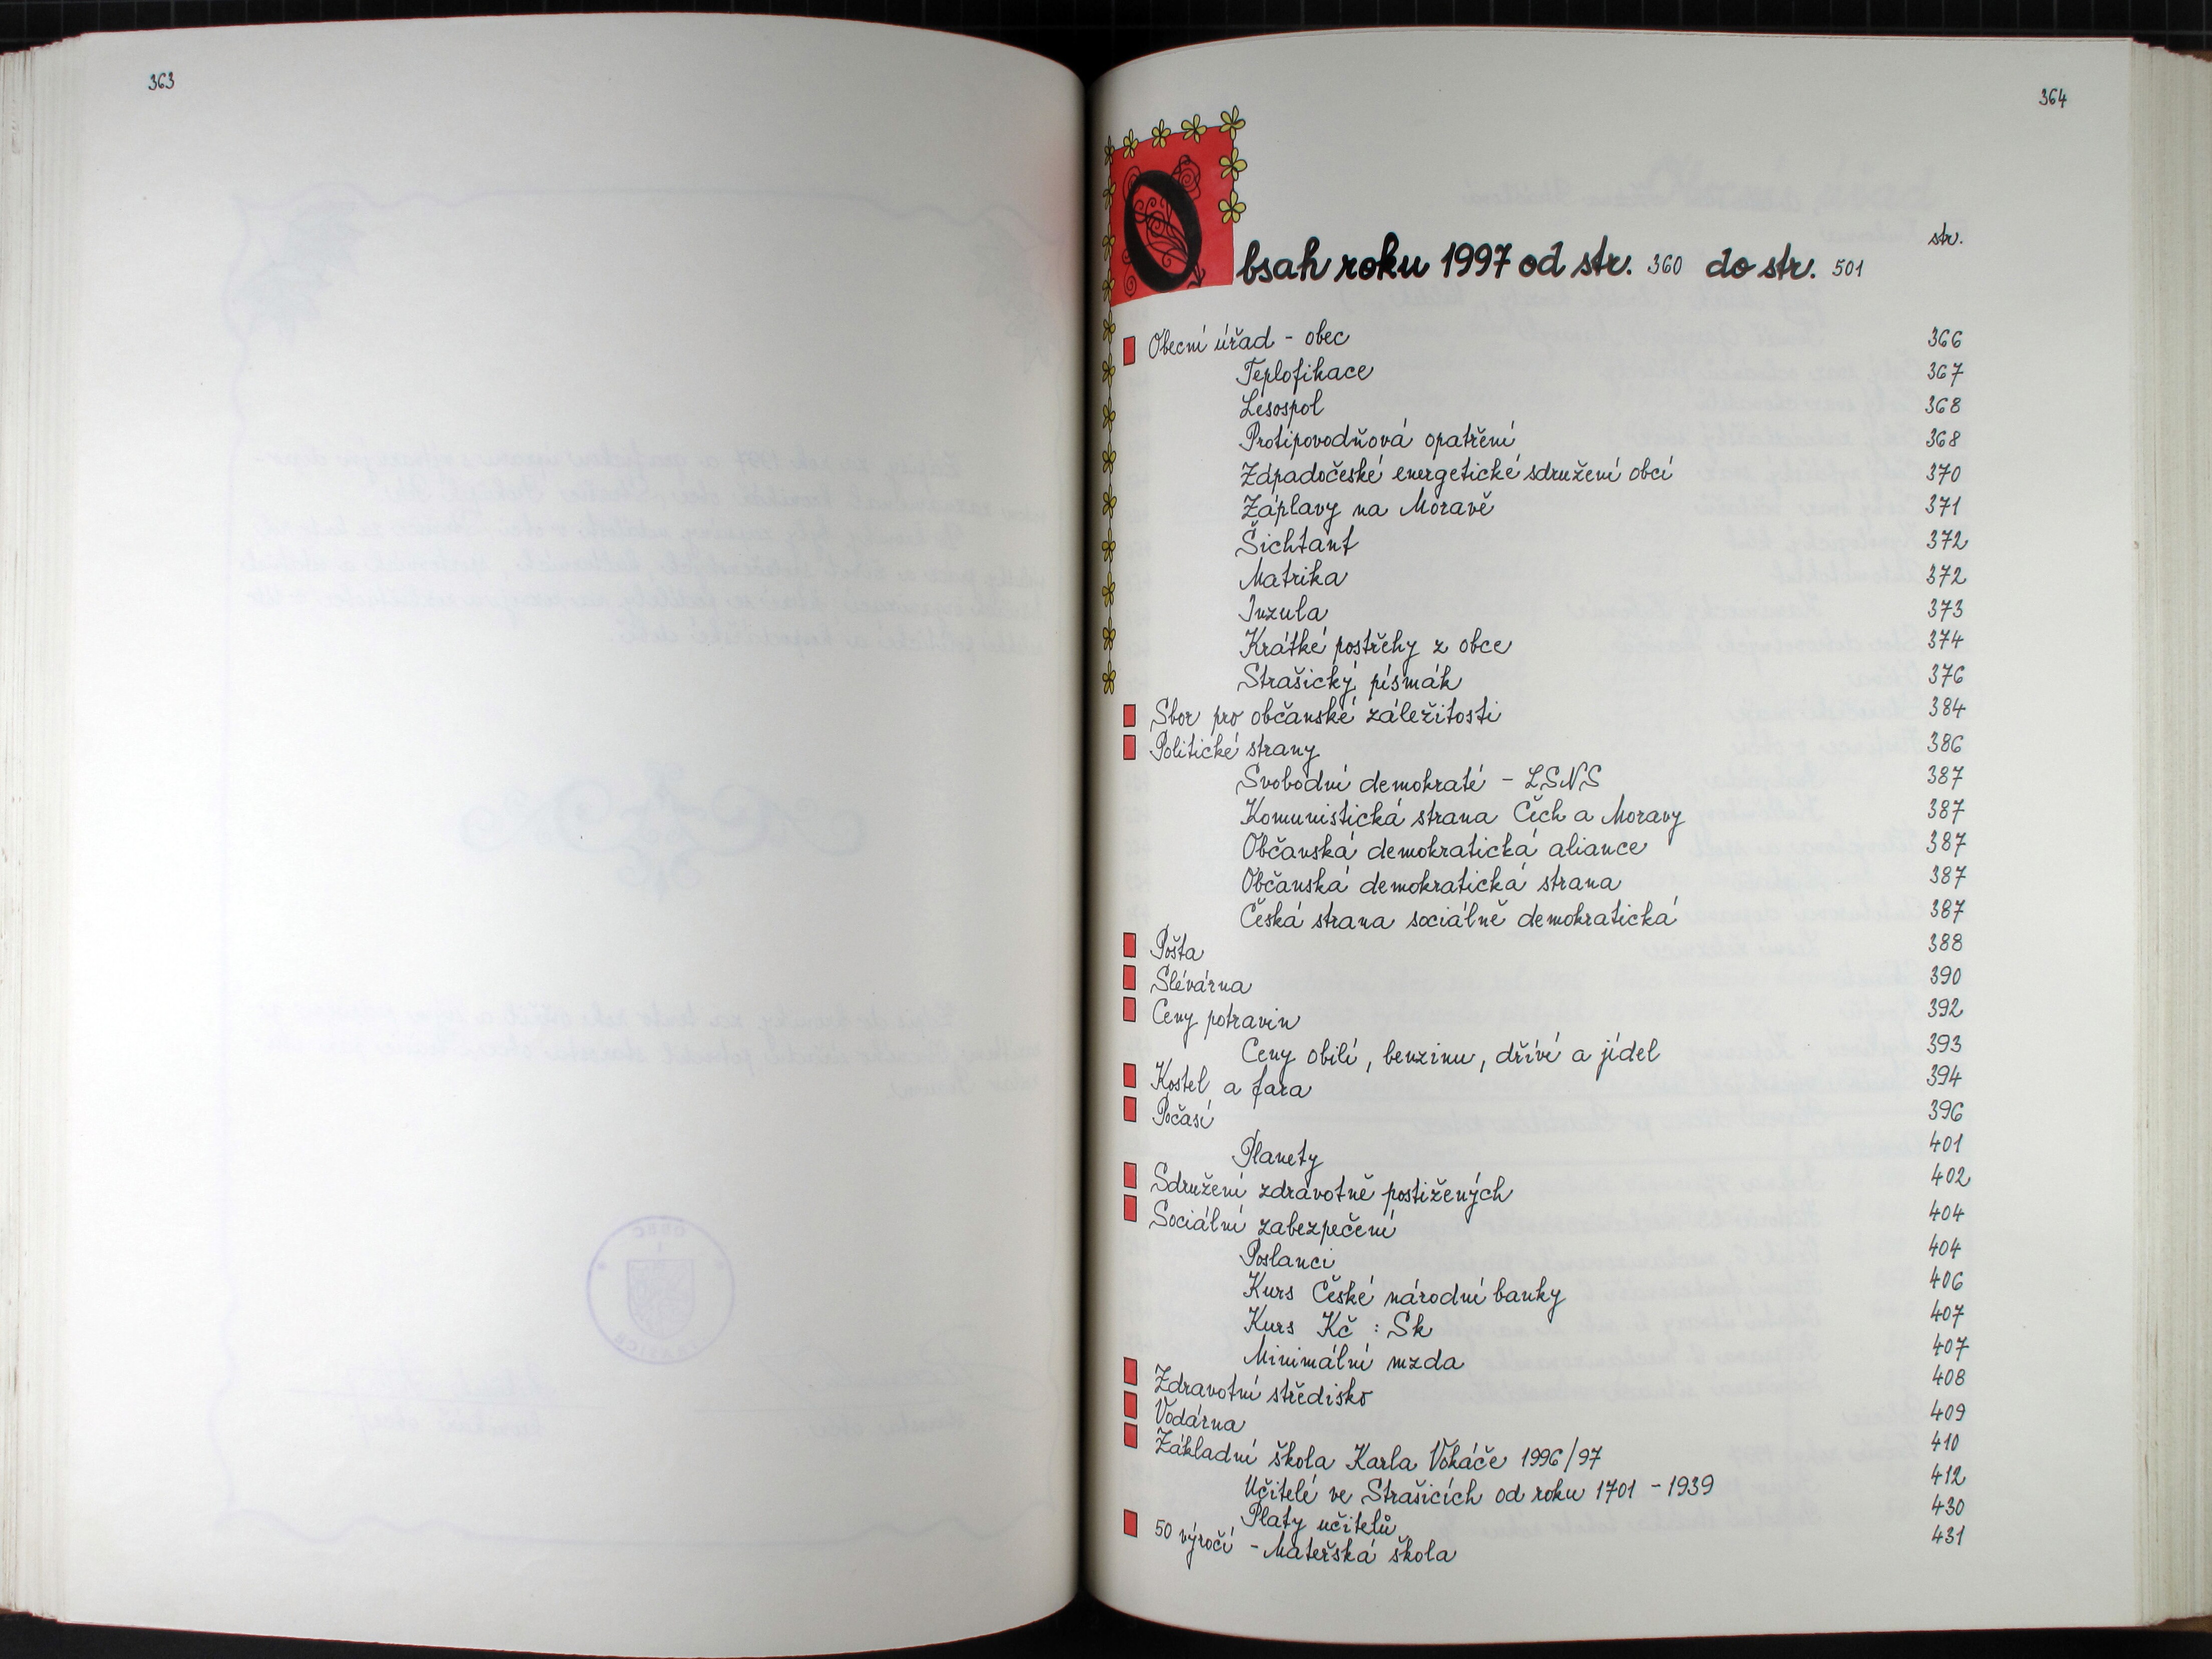 363
364
str.
Obsah roku 1997 od str. 360 do str. 501
Obecní úřad - obec 366
Teplofikace 367
Lesospol 368
Protipovodňová opatření 368
Západočeské energetické sdružení obcí 370
Záplavy na Moravě 371
Šichtant 372
Matrika 372
Inzula 373
Krátké postřehy z obce 374
Strašický písmák 376
Sbor pro občanské záležitosti 384
Politické strany 386
Svobodní demokraté - LSNS 387
Komunistická strana Čech a Moravy 387
Občanská demokratická aliance 387
Občanská demokratická strana 387
Česká strana sociálně demokratická 387
Pošta 388
Slévárna 390
Ceny potravin 392
Ceny obilí, benzinu, dříví a jídel 393
Kostel a fara 394
Počasí 396
Planety 401
Sdružení zdravotně postižených 402
Sociální zabezpečení 404
Poslanci 404
Kurs České národní banky 406
Kurs Kč : Sk 407
Minimální mzda 407
Zdravotní středisko 408
Vodárna 409
Základní škola Karla Vokáče 1996/97 410
Učitelé ve Strašicích od roku 1701 - 1939 412
Platy učitelů 430
50 výročí - Mateřská škola 431